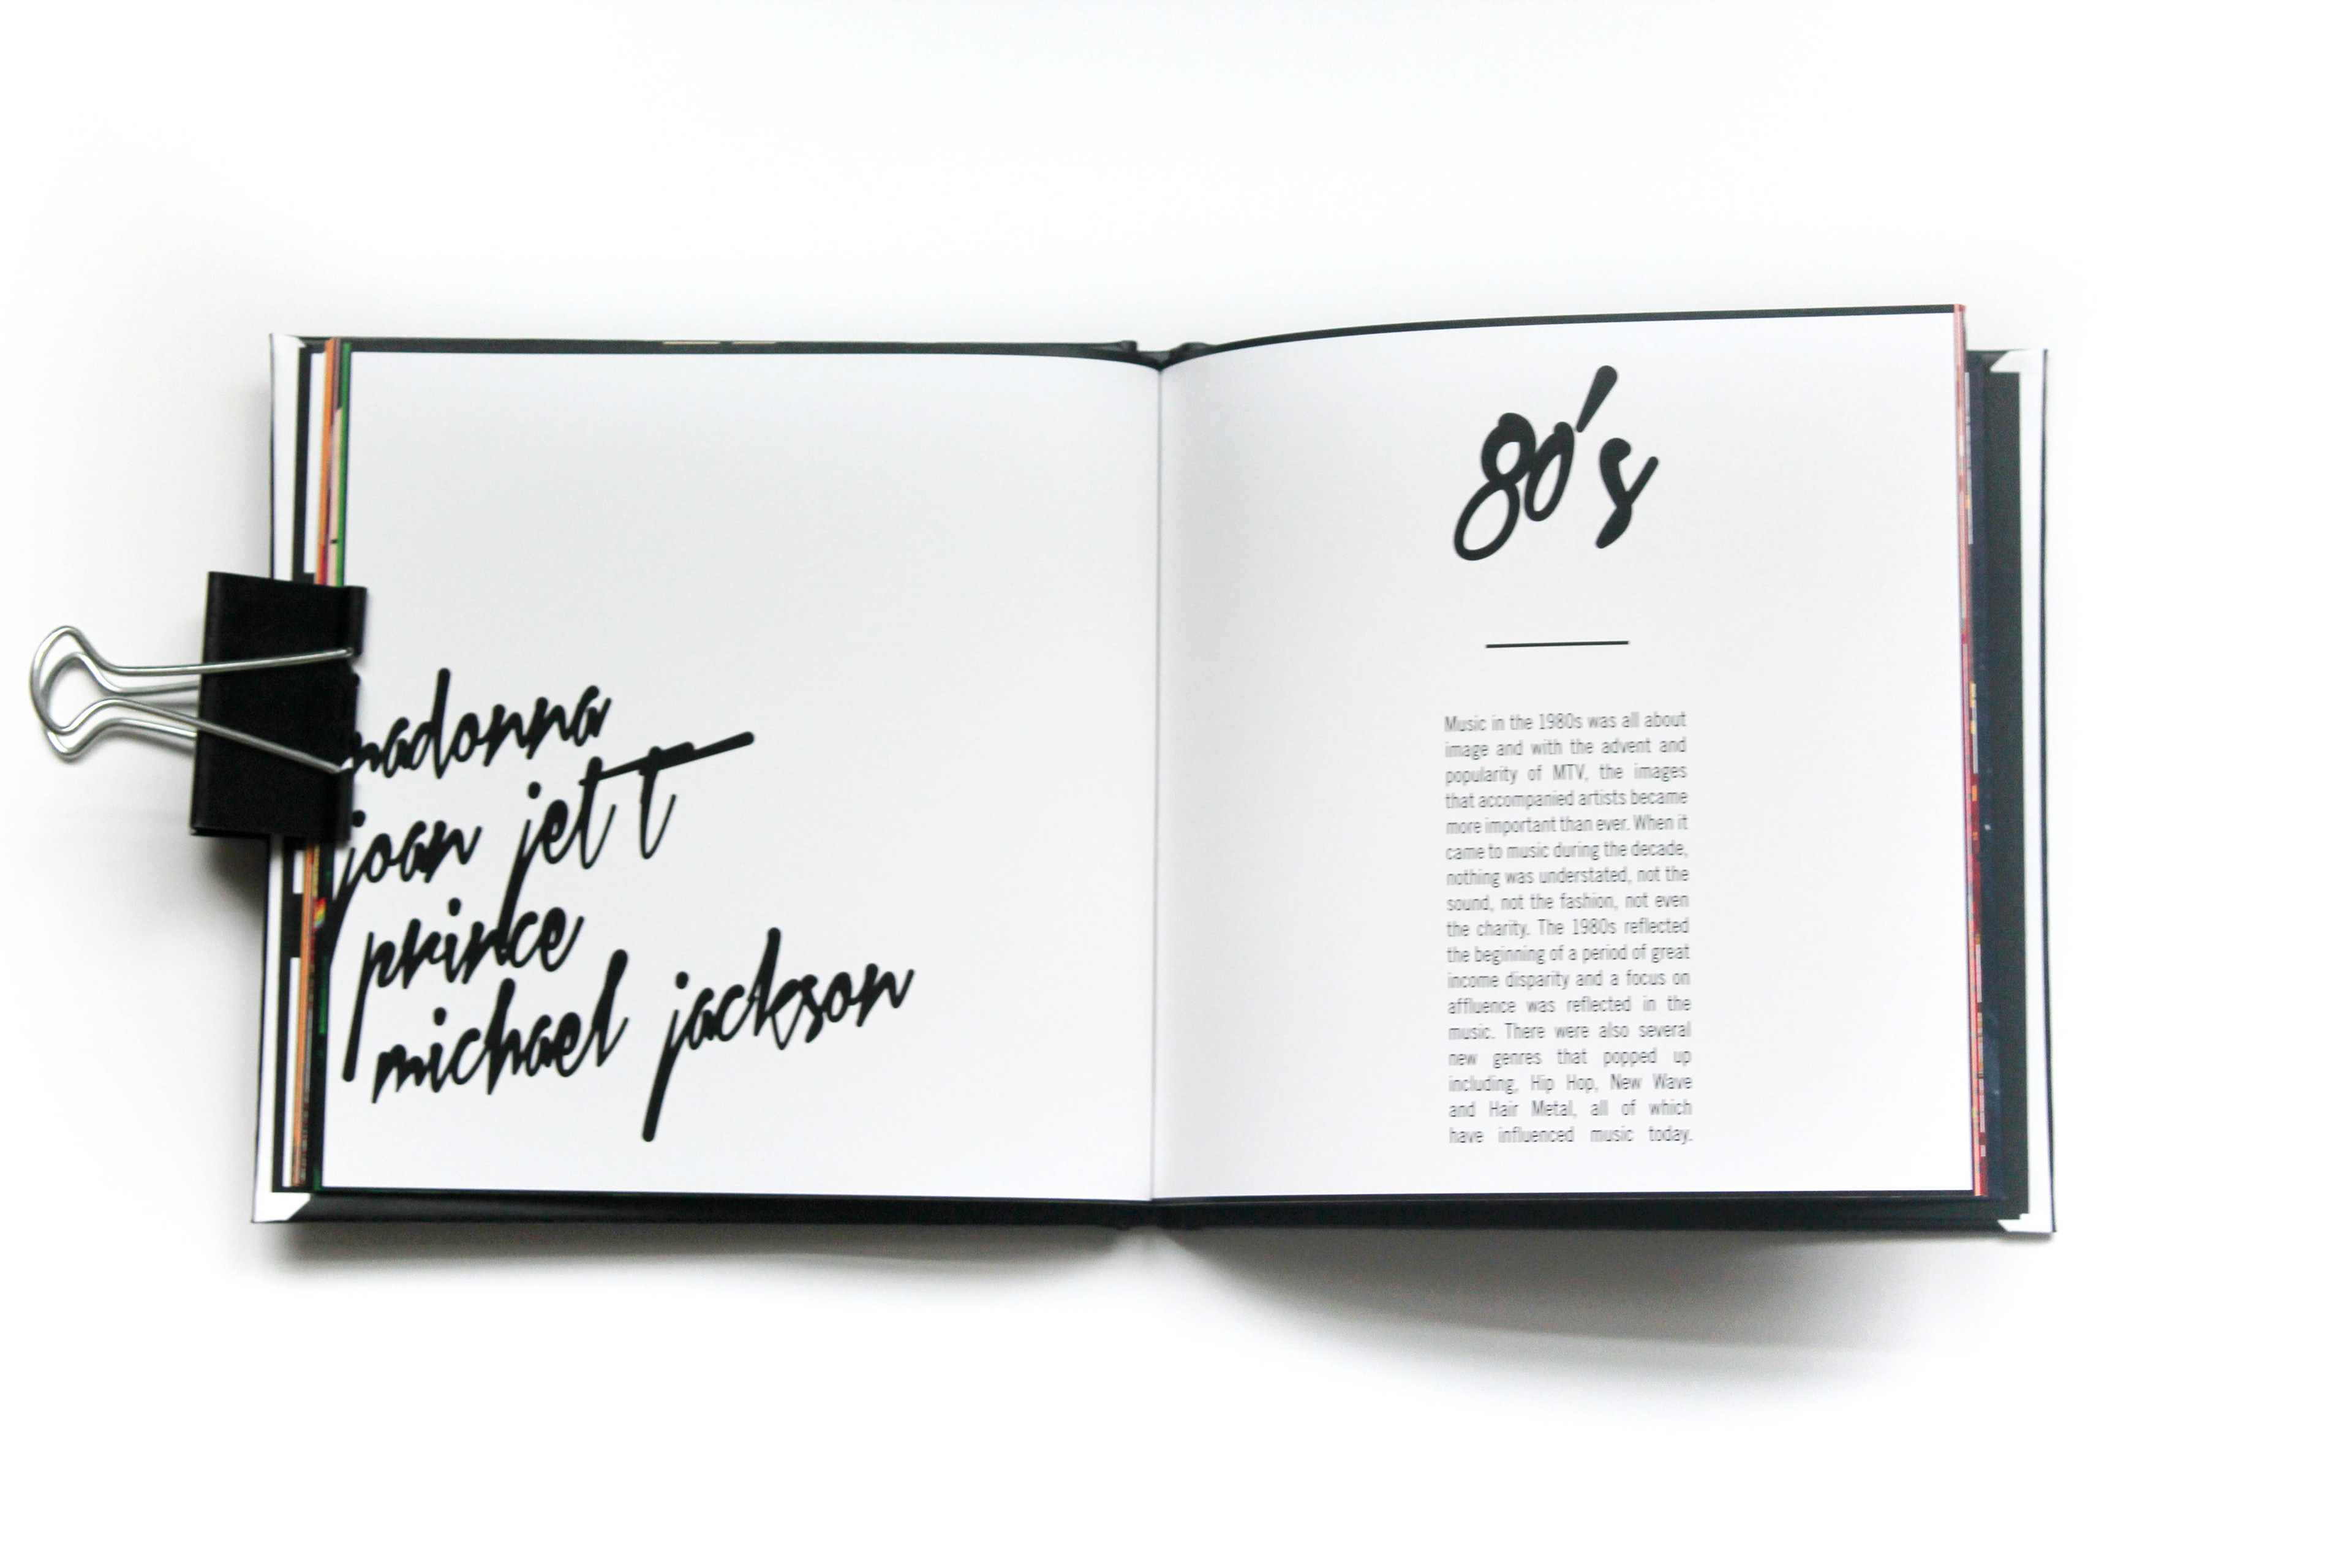 madonna
joan jett
prince
michael jackson
80's
Music in the 1980s was all about
image and with the advent and
popularity of MTV, the images
that accompanied artists became
more important than ever. When it
came to music during the decade,
nothing was understated, not the
sound, not the fashion, not even
the charity. The 1980s reflected
the beginning of a period of great
income disparity and a focus on
affluence was reflected in the
music. There were also several
new genres that popped up
including, Hip Hop, New Wave
and Hair Metal, all of which
have influenced music today.